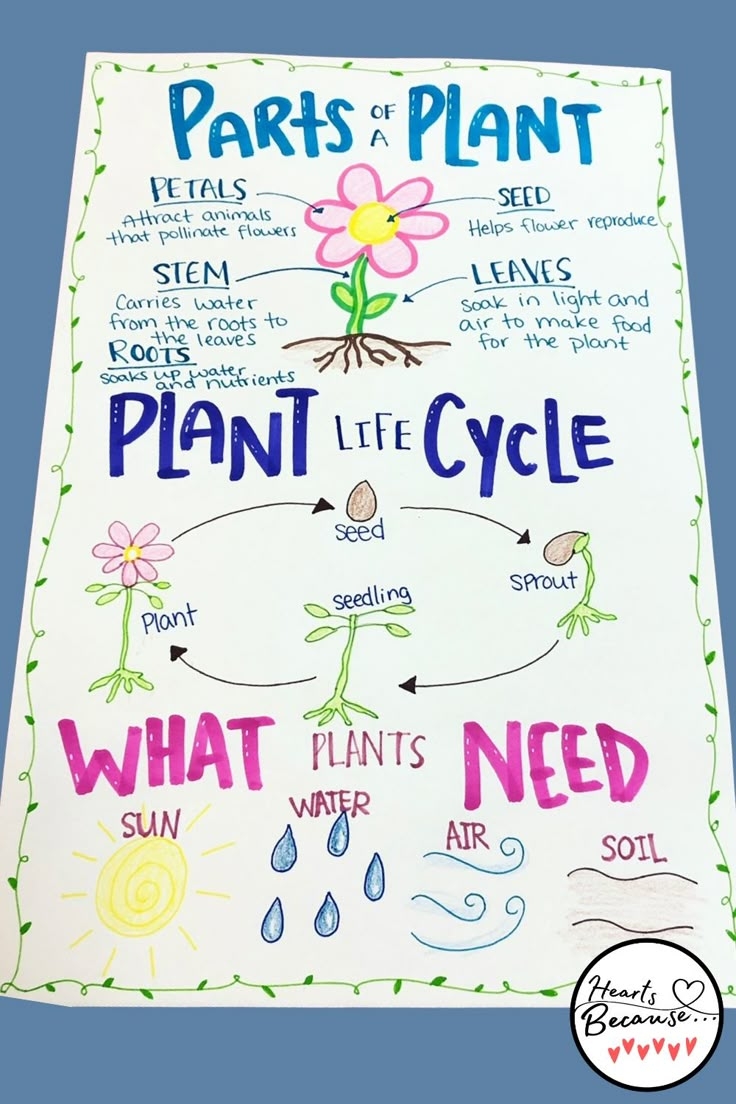 PARTS OF A PLANT
PETALS
Attract animals
that pollinate flowers
SEED
Helps flower reproduce
STEM
Carries water
from the roots to
the leaves
LEAVES
soak in light and
air to make food
for the plant
ROOTS
soaks up water
and nutrients
PLANT LIFE CYCLE
seed
sprout
seedling
Plant
WHAT PLANTS NEED
SUN
WATER
AIR
SOIL
Hearts
Because...